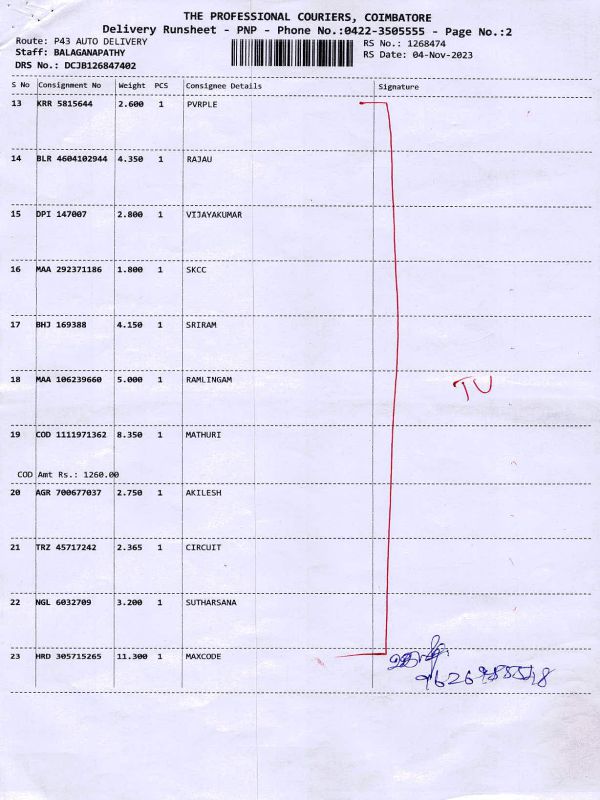 THE PROFESSIONAL COURIERS, COIMBATORE
Delivery Runsheet - PNP - Phone No.:0422-3505555 - Page No.:2
Route: P43 AUTO DELIVERY
Staff: BALAGANAPATHY
DRS No.: DCJB126847402
RS No.: 1268474
RS Date: 04-Nov-2023
S No Consignment No Weight PCS Consignee Details Signature
13 KRR 5815644 2.600 1 PVRPLE
14 BLR 4604102944 4.350 1 RAJAU
15 DPI 147007 2.800 1 VIJAYAKUMAR
16 MAA 292371186 1.800 1 SKCC
17 BHJ 169388 4.150 1 SRIRAM
18 MAA 106239660 5.000 1 RAMLINGAM
TU
19 COD 1111971362 8.350 1 MATHURI
COD Amt Rs.: 1260.00
20 AGR 700677037 2.750 1 AKILESH
21 TRZ 45717242 2.365 1 CIRCUIT
22 NGL 6032709 3.200 1 SUTHARSANA
23 HRD 305715265 11.300 1 MAXCODE